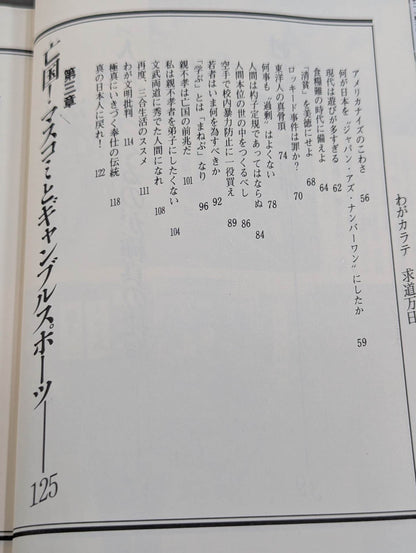 わがカラテ 求道万日
アメリカナイズのこわさ 56
何が日本を“ジャパン・アズ・ナンバーワン”にしたか 59
現代は遊びが多すぎる 62
食糧難の時代に備えよ 64
「清貧」を美徳にせよ 68
ロッキード事件は罪か? 70
東洋人の真骨頂 74
何事も“過剰”はよくない 78
人間は杓子定規であってはならぬ 84
人間本位の世の中をつくるべし 86
空手で校内暴力防止に一役買え 89
若者はいま何を為すべきか 92
「学ぶ」とは「まねぶ」なり 96
親不孝は亡国の前兆だ 101
私は親不孝者を弟子にしたくない 104
文武両道に秀でた人間になれ 108
再度、三合生活のススメ 111
わが文明批判 114
極真にいきづく奉仕の伝統 118
真の日本人に戻れ! 122
第三章
亡国!マスコミとギャンブルスポーツ── 125